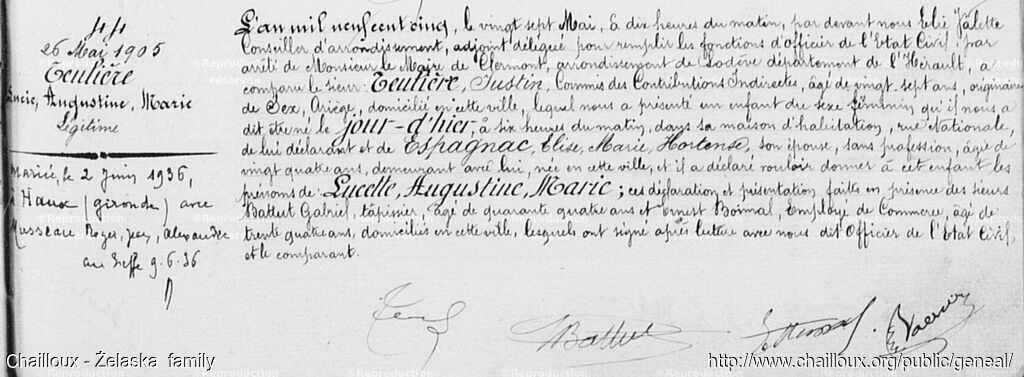 44
26 Mai 1905
Teulière
Lucie, Augustine, Marie
Légitime
Mariée, le 2 Juin 1936,
Haux (gironde) avec
Musseau Roger, jean, alexandre
au Greffe 9.6.36
L'an mil neuf cent cinq, le vingt sept Mai, à dix heures du matin, par devant nous Elie Valette
Conseiller d'arrondissement, adjoint délégué pour remplir les fonctions d'Officier de l'Etat Civil par
arrêté de Monsieur le Maire de Clermont, arrondissement de Lodève département de l'Hérault, a
comparu le sieur: Teulière, Justin, Commis des Contributions Indirectes, âgé de vingt sept ans, originaire
de Sex, Ariège, domicilié en cette ville, lequel nous a présenté un enfant du sexe féminin qu'il nous a
dit être né le jour-d'hier, à six heures du matin, dans sa maison d'habitation, rue Nationale,
de lui déclarant et de Espagnac, Elise, Marie, Hortense, son épouse, sans profession, âgée de
vingt quatre ans, demeurant avec lui, née en cette ville, et il a déclaré vouloir donner à cet enfant les
prénoms de: Lucette, Augustine, Marie; ces déclaration et présentation faites en présence des sieurs
Battut Gabriel, tapissier, âgé de quarante quatre ans et Ernest Boimal, Employé de Commerce, âgé de
trente quatre ans, domiciliés en cette ville, lesquels ont signé après lecture avec nous dit Officier de l'Etat Civil,
et le comparant.
Battut
Chailloux - Želaska family
http://www.chailloux.org/public/geneal/